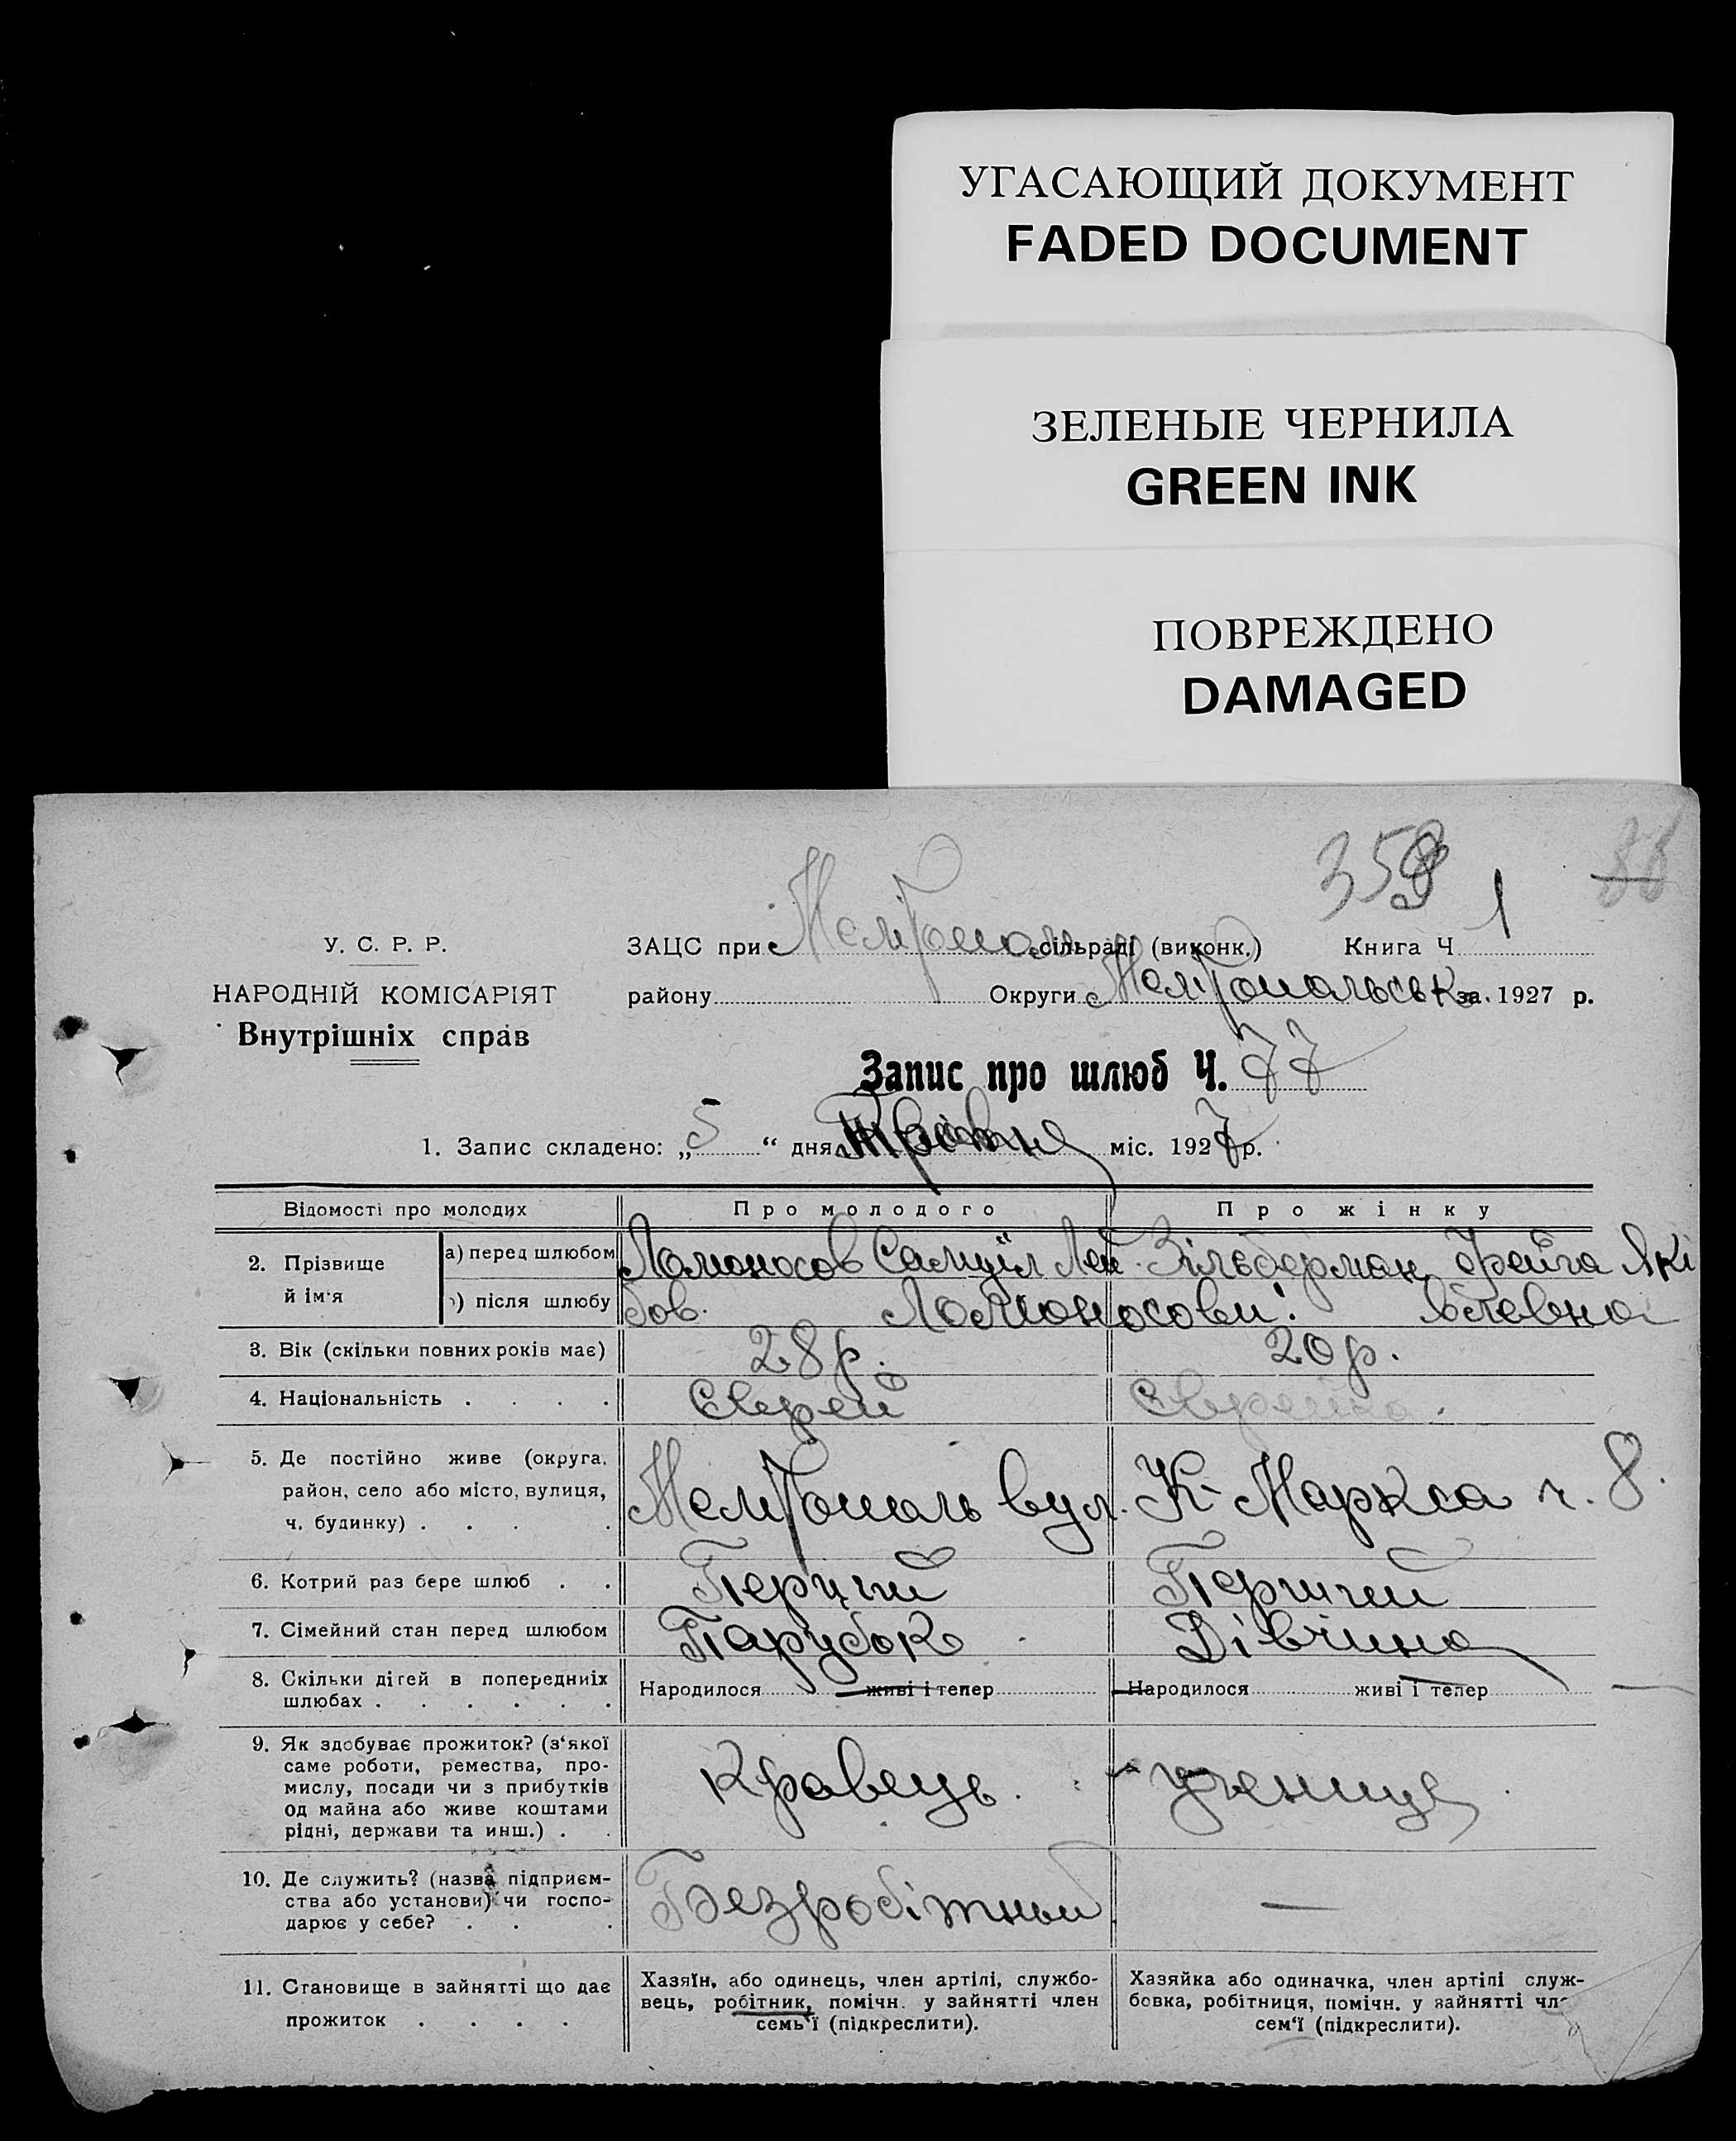 УГАСАЮЩИЙ ДОКУМЕНТ
FADED DOCUMENT
ЗЕЛЕНЫЕ ЧЕРНИЛА
GREEN INK
ПОВРЕЖДЕНО
DAMAGED
359
У. С. Р. Р.
ЗАЦС при Мелітополь сільраді (виконк.) Книга Ч 1
НАРОДНІЙ КОМІСАРІЯТ
району Округи Мелітопольськ за 1927 р.
Внутрішніх справ
Запис про шлюб Ч. 77
1. Запис складено: „5“ дня Травня міс. 1927 р.
Відомості про молодих
Про молодого
Про жінку
2. Прізвище й ім'я
а) перед шлюбом
Ломоносов Самуїл Лей
Зільберман Фейга Які
) після шлюбу
бов. Ломоносови! влевна
3. Вік (скільки повних років має)
28 р.
20 р.
4. Національність . . . .
Єврей
Єврейка.
5. Де постійно живе (округа,
район, село або місто, вулиця,
ч. будинку) . . . .
Мелітополь вул. К-Маркса ч. 8.
6. Котрий раз бере шлюб . .
Перший
Перший
7. Сімейний стан перед шлюбом
Парубок
Дівчина
8. Скільки дітей в попередниіх
шлюбах . . . . . .
Народилося живі і тепер
Народилося живі і тепер
9. Як здобуває прожиток? (з'якої
саме роботи, ремества, про-
мислу, посади чи з прибутків
од майна або живе коштами
рідні, держави та инш.) . .
Кравець.
учениця
10. Де служить? (назва підприєм-
ства або установи) чи госпо-
дарює у себе? . . .
Безробітный
—
11. Становище в зайнятті що дає
прожиток . . . .
Хазяїн, або одинець, член артілі, службо-
вець, робітник, помічн. у зайнятті член
семь'ї (підкреслити).
Хазяйка або одиначка, член артілі служ-
бовка, робітниця, помічн. у зайнятті чле
сем'ї (підкреслити).